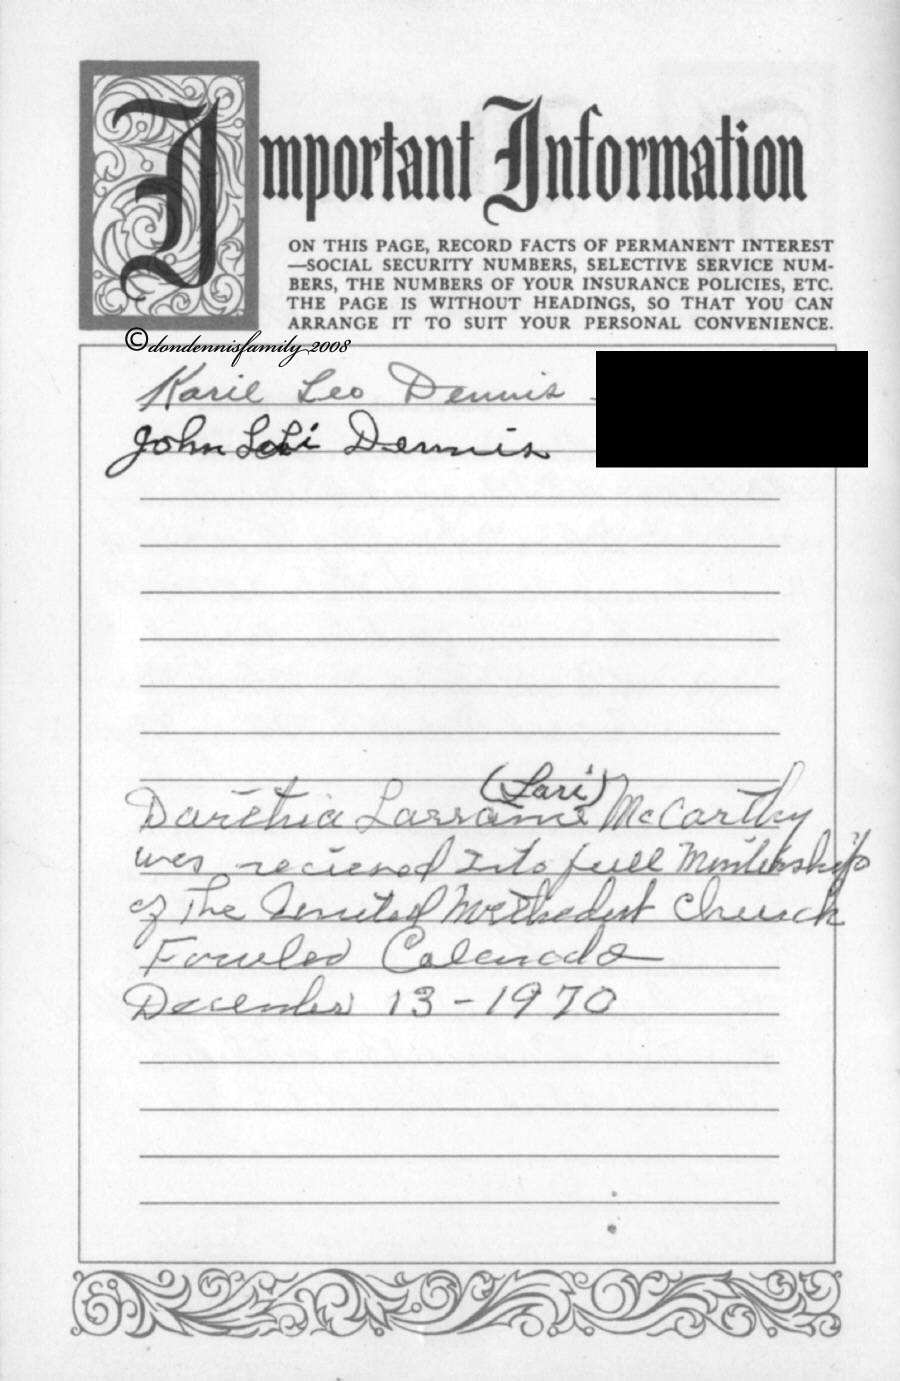 Important Information
ON THIS PAGE, RECORD FACTS OF PERMANENT INTEREST
—SOCIAL SECURITY NUMBERS, SELECTIVE SERVICE NUM-
BERS, THE NUMBERS OF YOUR INSURANCE POLICIES, ETC.
THE PAGE IS WITHOUT HEADINGS, SO THAT YOU CAN
ARRANGE IT TO SUIT YOUR PERSONAL CONVENIENCE.
©dondennisfamily 2008
Karie Leo Dennis -
John Dennis
(Lari)
McCarthy
was recieved Into full
of The United Methodist Church
Fowler Colorado
December 13-1970